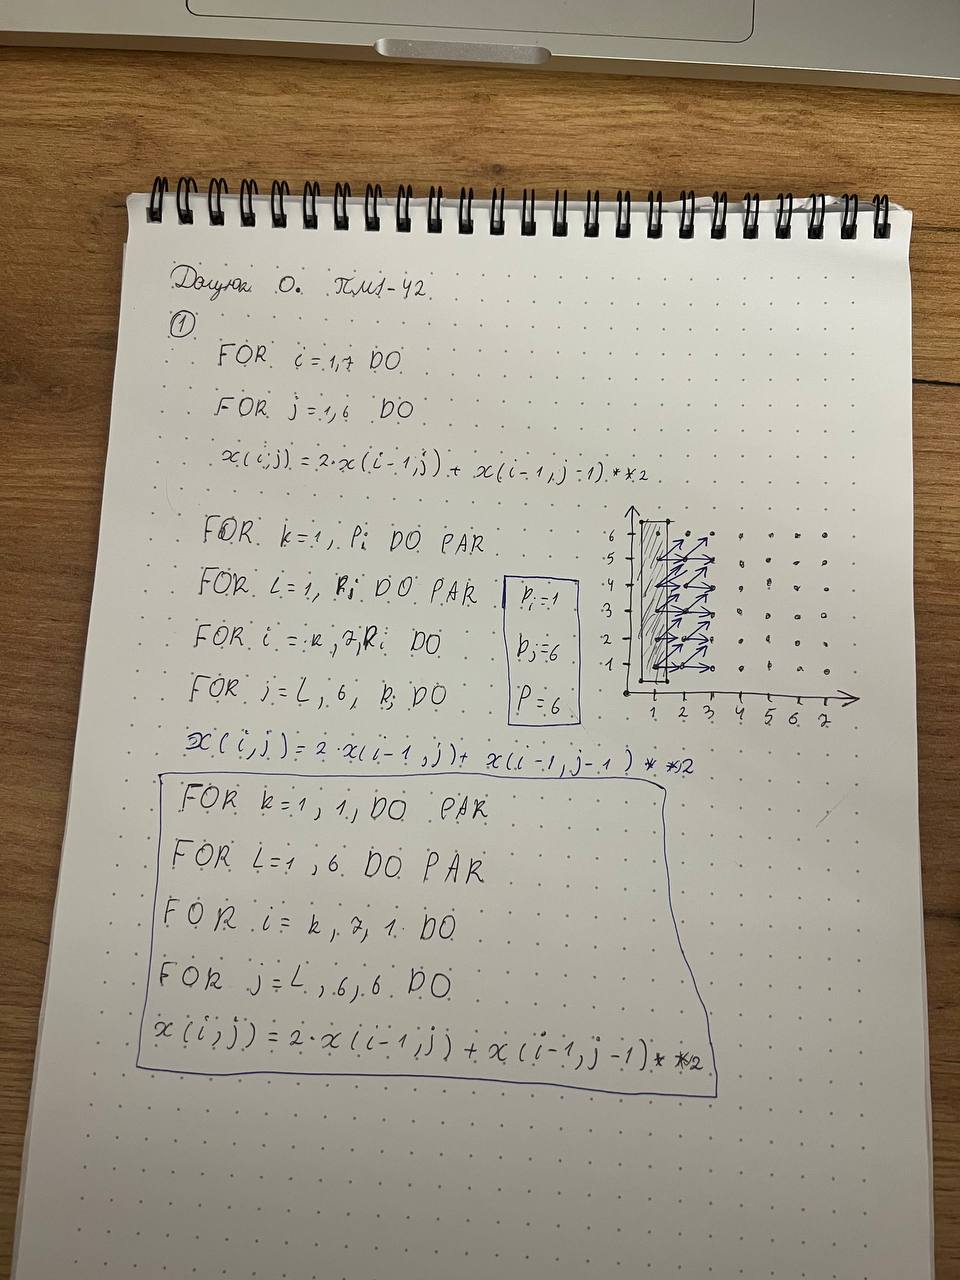 О. ПМІ-42
1
FOR i=1,7 DO
FOR j=1,6 DO
x(i,j) = 2·x(i-1,j) + x(i-1,j-1)**2
FOR k=1, Pi DO PAR
FOR L=1, Pj DO PAR
FOR i=k,7,Pi DO
FOR j=L, 6, Pj DO
x(i,j)=2·x(i-1,j)+ x(i-1,j-1)**2
Pi=1
Pj=6
P=6
6
5
4
3
2
1
1 2 3 4 5 6 7
FOR k=1, 1, DO PAR
FOR L=1,6 DO PAR
FOR i=k,7,1 DO
FOR j=L,6,6 DO
x(i,j)=2·x(i-1,j)+x(i-1,j-1)**2